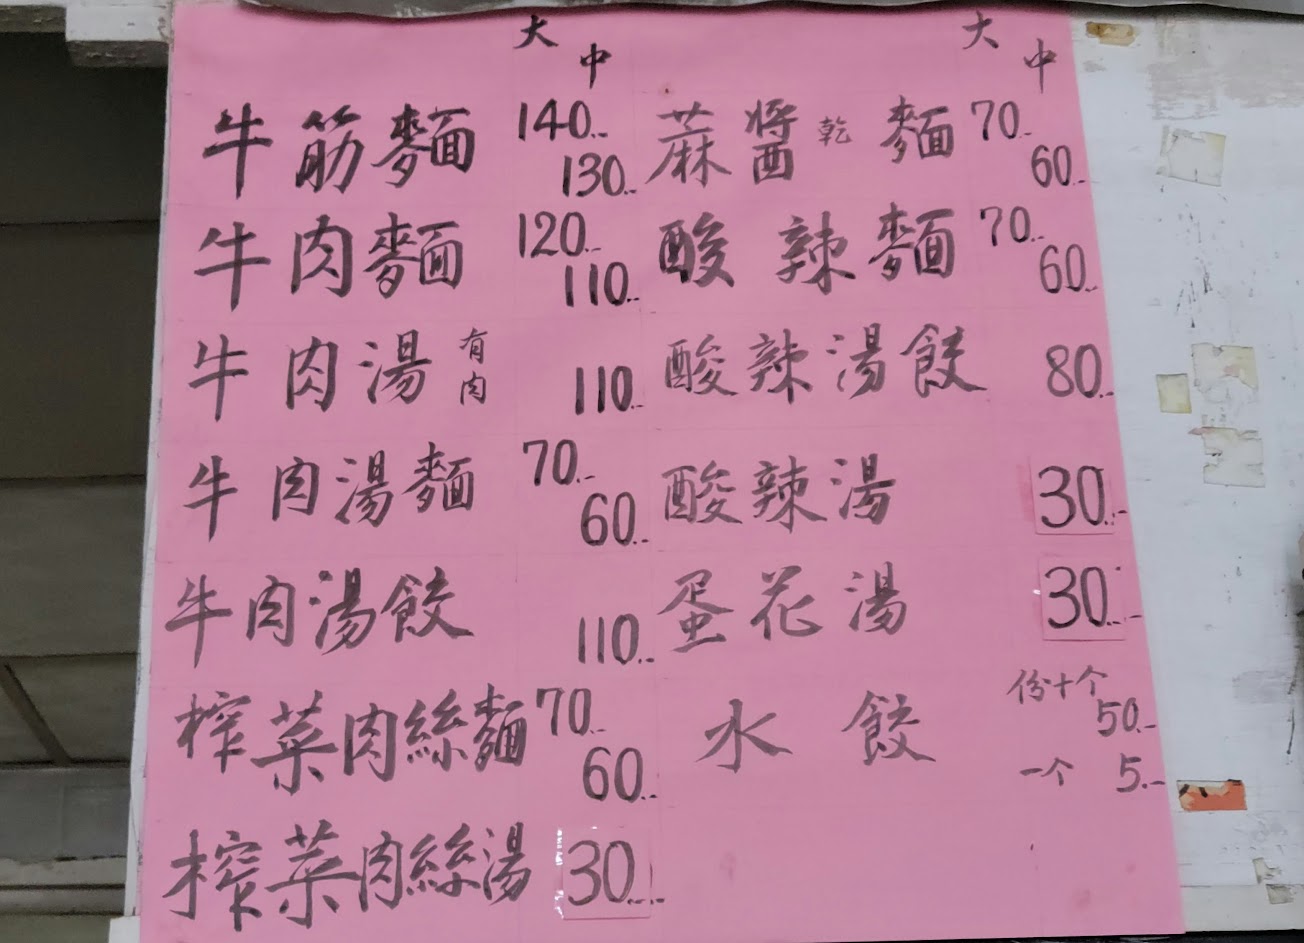 大 中
牛筋麵 140.- 130.-
牛肉麵 120.- 110.-
牛肉湯 有肉 110.-
牛肉湯麵 70.- 60.-
牛肉湯餃 110.-
榨菜肉絲麵 70.- 60.-
榨菜肉絲湯 30.-
大 中
蔴醬乾麵 70.- 60.-
酸辣麵 70.- 60.-
酸辣湯餃 80.-
酸辣湯 30.-
蛋花湯 30.-
水餃 份十个 50.-
一个 5.-